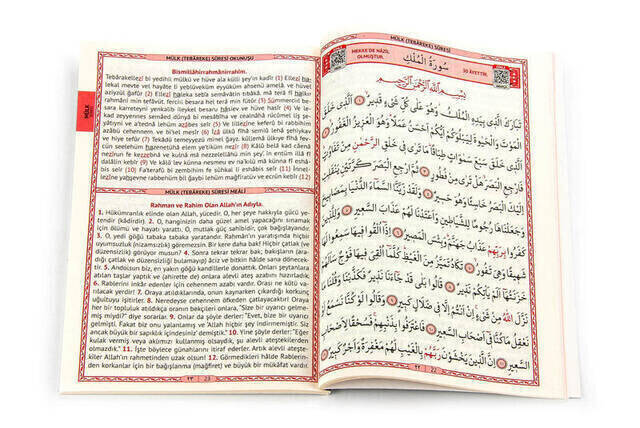 MÜLK (TEBÂREKE) SÛRESİ OKUNUŞU
Bismillâhirrahmânirrahîm.
Tebârakellezî bi yedihil mülkü ve hüve alâ külli şey'in kadîr (1) Ellezî ha-
lekal mevte vel hayâte li yeblüveküm eyyüküm ahsenü amelâ, ve hüvel
azîzül ğafûr (2) Ellezî haleka seb'a semâvâtin tıbâkâ, mâ terâ fî halkır
rahmâni min tefâvüt, ferciıl besara hel terâ min fütûr (3) Sümmerciıl be-
sara karrateyni yenkalib ileykel besaru hâsien ve hüve hasîr (4) Ve le-
kad zeyyennes semâed dünyâ bi mesâbîha ve cealnâhâ rucûmel liş şe-
yâtîni ve a'tednâ lehüm azâbes seîr (5) Ve lillezîne keferû bi rabbihim
azâbü cehennem, ve bi'sel mesîr (6) İzâ ülkû fîhâ semiû lehâ şehîykav
ve hiye tefûr (7) Tekâdü temeyyezü minel ğayz, küllemâ ülkıye fîhâ fev-
cün seelehüm hazenetühâ elem ye'tiküm nezîr (8) Kâlû belâ kad câenâ
nezîrun fe kezzebnâ ve kulnâ mâ nezzelellâhü min şey', in entüm illâ fî
dalâlin kebîr (9) Ve kâlû lev künnâ nesmeu ev na'kılü mâ künnâ fî eshâ-
bis seîr (10) Fa'terafû bi zembihim fe sühkal li eshâbis seîr (11) İnnel-
lezîne yahşevne rabbehüm bil ğaybi lehüm mağfiratüv ve ecrun kebîr (12)
MÜLK (TEBÂREKE) SÛRESİ MEÂLİ
Rahman ve Rahim Olan Allah'ın Adıyla.
1. Hükümranlık elinde olan Allah, yücedir. O, her şeye hakkıyla gücü ye-
tendir (kâdirdir). 2. O, hanginizin daha güzel amel yapacağını sınamak
için ölümü ve hayatı yarattı. O, mutlak güç sahibidir, çok bağışlayandır.
3. O, yedi göğü tabaka tabaka yaratandır. Rahman'ın yaratışında hiçbir
uyumsuzluk (nizamsızlık) göremezsin. Bir kere daha bak! Hiçbir çatlak (ve
düzensizlik) görüyor musun? 4. Sonra tekrar tekrar bak; bakışların (ara-
dığı çatlak ve düzensizliği bulamayıp) âciz ve bitkin hâlde sana dönecek-
tir. 5. Andolsun biz, en yakın göğü kandillerle donattık. Onları şeytanlara
atılan taşlar yaptık ve (ahirette de) onlara alevli ateş azabını hazırladık.
6. Rablerini inkâr edenler için cehennem azabı vardır. Orası ne kötü va-
rılacak yerdir! 7. Oraya atıldıklarında, onun kaynarken çıkardığı korkunç
uğultuyu işitirler. 8. Neredeyse cehennem öfkeden çatlayacaktır! Oraya
her bir topluluk atıldıkça oranın bekçileri onlara, "Size bir uyarıcı gelme-
miş miydi?" diye sorarlar. 9. Onlar da şöyle derler: "Evet, bize bir uyarıcı
gelmişti. Fakat biz onu yalanlamış ve 'Allah hiçbir şey indirmemiştir. Siz
ancak büyük bir sapıklık içindesiniz' demiştik." 10. Yine şöyle derler: "Eğer
kulak vermiş veya aklımızı kullanmış olsaydık, şu alevli ateştekilerden
olmazdık." 11. İşte böylece günahlarını itiraf ederler. Artık alevli ateşte-
kiler Allah'ın rahmetinden uzak olsun! 12. Görmedikleri hâlde Rablerin-
den korkanlar için bir bağışlanma (mağfiret) ve büyük bir mükâfat vardır.
٢٣ 23
MÜLK
MÜLK (TEBÂREKE) SÛRESİ
MEKKE'DE NAZİL
OLMUŞTUR.
سُورَةُ الْمُلْكِ
30 ÂYETTİR.
بِسْمِ اللّٰهِ الرَّحْمٰنِ الرَّحِيمِ
تَبَارَكَ الَّذِي بِيَدِهِ الْمُلْكُ وَهُوَ عَلَى كُلِّ شَيْءٍ قَدِيرٌ ١ الَّذِي خَلَقَ
الْمَوْتَ وَالْحَيٰوةَ لِيَبْلُوَكُمْ اَيُّكُمْ اَحْسَنُ عَمَلًا وَهُوَ الْعَزِيزُ الْغَفُورُ ٢
الَّذِي خَلَقَ سَبْعَ سَمٰوَاتٍ طِبَاقًا مَا تَرٰى فِي خَلْقِ الرَّحْمٰنِ مِنْ تَفَاوُتٍ
فَارْجِعِ الْبَصَرَ هَلْ تَرٰى مِنْ فُطُورٍ ٣ ثُمَّ ارْجِعِ الْبَصَرَ كَرَّتَيْنِ يَنْقَلِبْ
اِلَيْكَ الْبَصَرُ خَاسِئًا وَهُوَ حَسِيرٌ ٤ وَلَقَدْ زَيَّنَّا السَّمَاءَ الدُّنْيَا بِمَصَابِيحَ
وَجَعَلْنَاهَا رُجُومًا لِلشَّيَاطِينِ وَاَعْتَدْنَا لَهُمْ عَذَابَ السَّعِيرِ ٥ وَلِلَّذِينَ
كَفَرُوا بِرَبِّهِمْ عَذَابُ جَهَنَّمَ وَبِئْسَ الْمَصِيرُ ٦ اِذَا اُلْقُوا فِيهَا سَمِعُوا لَهَا
شَهِيقًا وَهِيَ تَفُورُ ٧ تَكَادُ تَمَيَّزُ مِنَ الْغَيْظِ كُلَّمَا اُلْقِيَ فِيهَا فَوْجٌ سَاَلَهُمْ
خَزَنَتُهَا اَلَمْ يَأْتِكُمْ نَذِيرٌ ٨ قَالُوا بَلٰى قَدْ جَاءَنَا نَذِيرٌ فَكَذَّبْنَا وَقُلْنَا مَا
نَزَّلَ اللّٰهُ مِنْ شَيْءٍ اِنْ اَنْتُمْ اِلَّا فِي ضَلَالٍ كَبِيرٍ ٩ وَقَالُوا لَوْ كُنَّا نَسْمَعُ اَوْ
نَعْقِلُ مَا كُنَّا فِي اَصْحَابِ السَّعِيرِ ١٠ فَاعْتَرَفُوا بِذَنْبِهِمْ فَسُحْقًا لِاَصْحَابِ
السَّعِيرِ ١١ اِنَّ الَّذِينَ يَخْشَوْنَ رَبَّهُمْ بِالْغَيْبِ لَهُمْ مَغْفِرَةٌ وَاَجْرٌ كَبِيرٌ ١٢
٢٢ 22